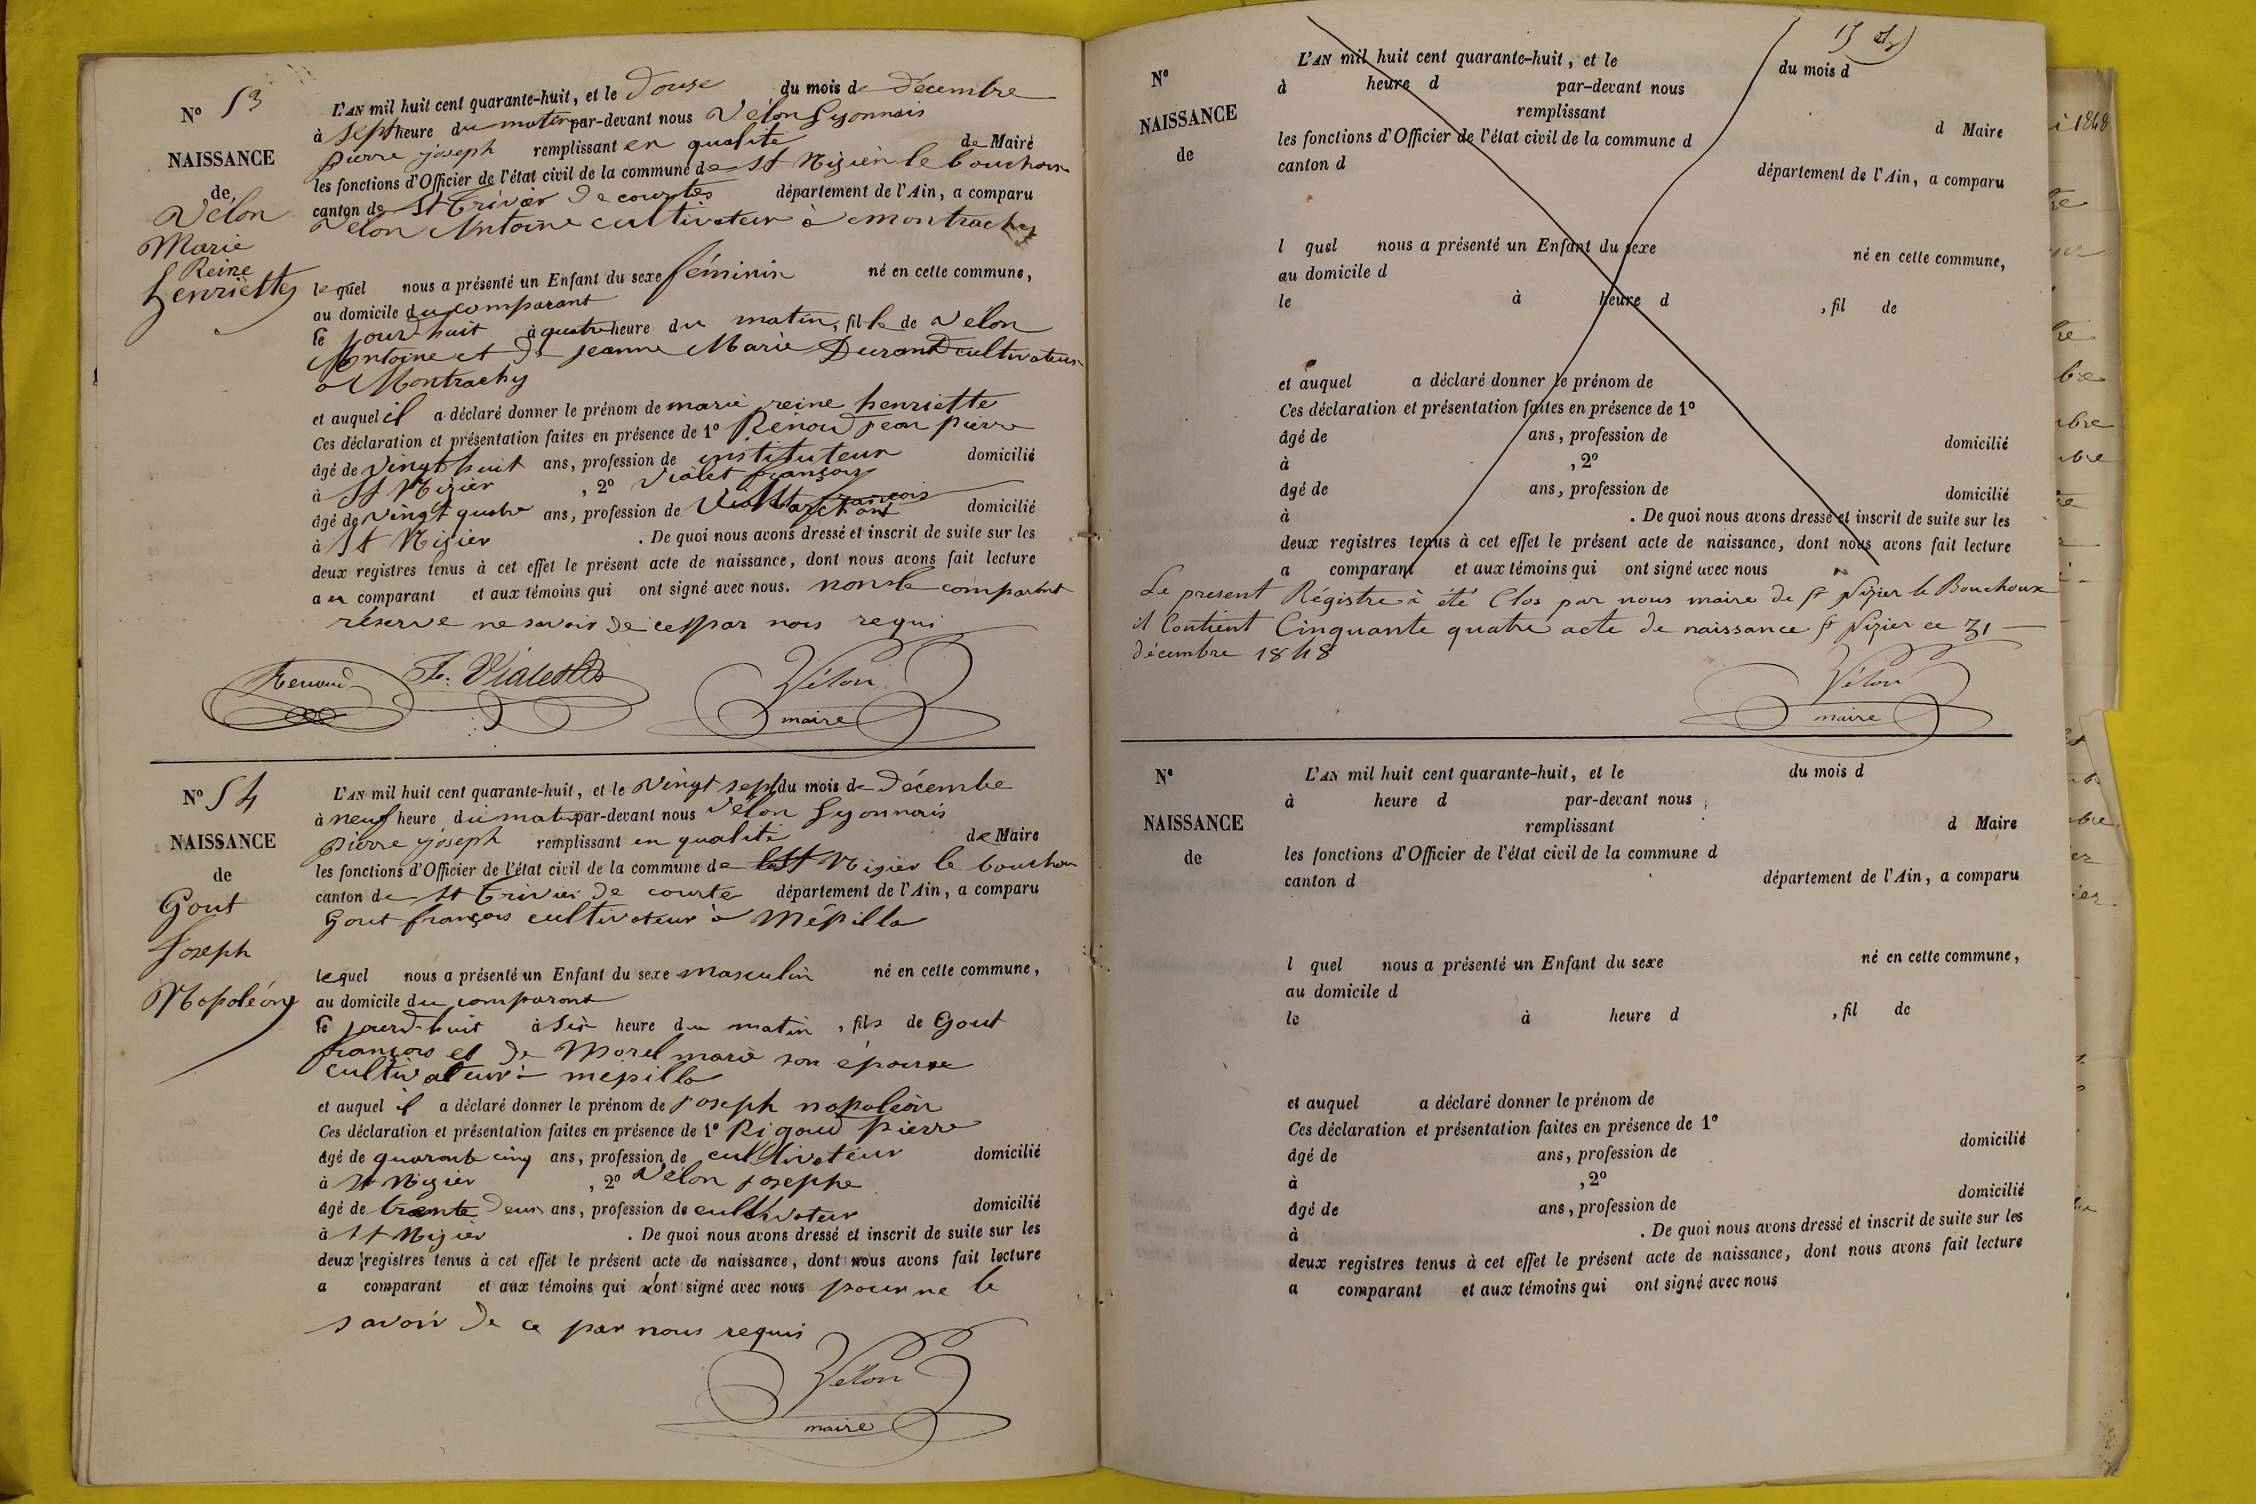 N° 53
NAISSANCE
de
Vélon
Marie
Reine
henriette
L'AN mil huit cent quarante-huit, et le Douse du mois de décembre
à sept heure du matin par-devant nous Vélon Lyonnais
pierre joseph remplissant en qualité de Maire
les fonctions d'Officier de l'état civil de la commune de St Nizier le bouchoux
canton de St Trivier de courtes département de l'Ain, a comparu
Velon Antoine cultivateur à montrachy
lequel nous a présenté un Enfant du sexe féminin né en cette commune,
au domicile du comparant
le jourd'huit à quatre heure du matin, fille de Velon
Antoine et de jeanne Marie Durand cultivateur
a Montrachy
et auquel il a déclaré donner le prénom de marie reine henriette
Ces déclaration et présentation faites en présence de 1° Renoud jean pierre
âgé de vingt huit ans, profession de instituteur domicilié
à St Nizier , 2° Violet françois
âgé de vingt quatre ans, profession de Violet françois Marchant domicilié
à St Nizier . De quoi nous avons dressé et inscrit de suite sur les
deux registres tenus à cet effet le présent acte de naissance, dont nous avons fait lecture
a u comparant et aux témoins qui ont signé avec nous. non le comparant
réserve ne savoir de ce par nous requi
Renoud F. Violet Vélon
maire
N° 54
NAISSANCE
de
Gout
Joseph
Napoléon
L'AN mil huit cent quarante-huit, et le vingt sept du mois de décembe
à neuf heure du matin par-devant nous Vélon Lyonnais
pierre joseph remplissant en qualité de Maire
les fonctions d'Officier de l'état civil de la commune de St Nizier le bouchou
canton de St Trivier de courte département de l'Ain, a comparu
Gout françois cultivateur à Mépilla
lequel nous a présenté un Enfant du sexe masculin né en cette commune,
au domicile du comparant
le jourd'huit à six heure du matin, fils de Gout
françois et de Morel marie son épouse
cultivateur à mépilla
et auquel il a déclaré donner le prénom de joseph napoléon
Ces déclaration et présentation faites en présence de 1° Rigoud pierre
âgé de quarante cinq ans, profession de cultivateur domicilié
à St Nizier , 2° Vélon josephe
âgé de trente deux ans, profession de cultivateur domicilié
à St Nizier . De quoi nous avons dressé et inscrit de suite sur les
deux registres tenus à cet effet le présent acte de naissance, dont nous avons fait lecture
a comparant et aux témoins qui n'ont signé avec nous pour ne le
savoir de ce par nous requis
Vélon
maire
N°
NAISSANCE
de
L'AN mil huit cent quarante-huit, et le du mois d
à heure d par-devant nous
remplissant d Maire
les fonctions d'Officier de l'état civil de la commune d
canton d département de l'Ain, a comparu
l quel nous a présenté un Enfant du sexe né en cette commune,
au domicile d
le à heure d , fil de
et auquel a déclaré donner le prénom de
Ces déclaration et présentation faites en présence de 1°
âgé de ans, profession de domicilié
à , 2°
âgé de ans, profession de domicilié
à . De quoi nous avons dressé et inscrit de suite sur les
deux registres tenus à cet effet le présent acte de naissance, dont nous avons fait lecture
a comparant et aux témoins qui ont signé avec nous
Le present Régistre à été Clos par nous maire de St Nizier le Bouchoux
il Contient Cinquante quatre acte de naissance St Nizier ce 31
décembre 1848
Vélon
maire
N°
NAISSANCE
de
L'AN mil huit cent quarante-huit, et le du mois d
à heure d par-devant nous
remplissant d Maire
les fonctions d'Officier de l'état civil de la commune d
canton d département de l'Ain, a comparu
l quel nous a présenté un Enfant du sexe né en cette commune,
au domicile d
le à heure d , fil de
et auquel a déclaré donner le prénom de
Ces déclaration et présentation faites en présence de 1°
âgé de ans, profession de domicilié
à , 2°
âgé de ans, profession de domicilié
à . De quoi nous avons dressé et inscrit de suite sur les
deux registres tenus à cet effet le présent acte de naissance, dont nous avons fait lecture
a comparant et aux témoins qui ont signé avec nous